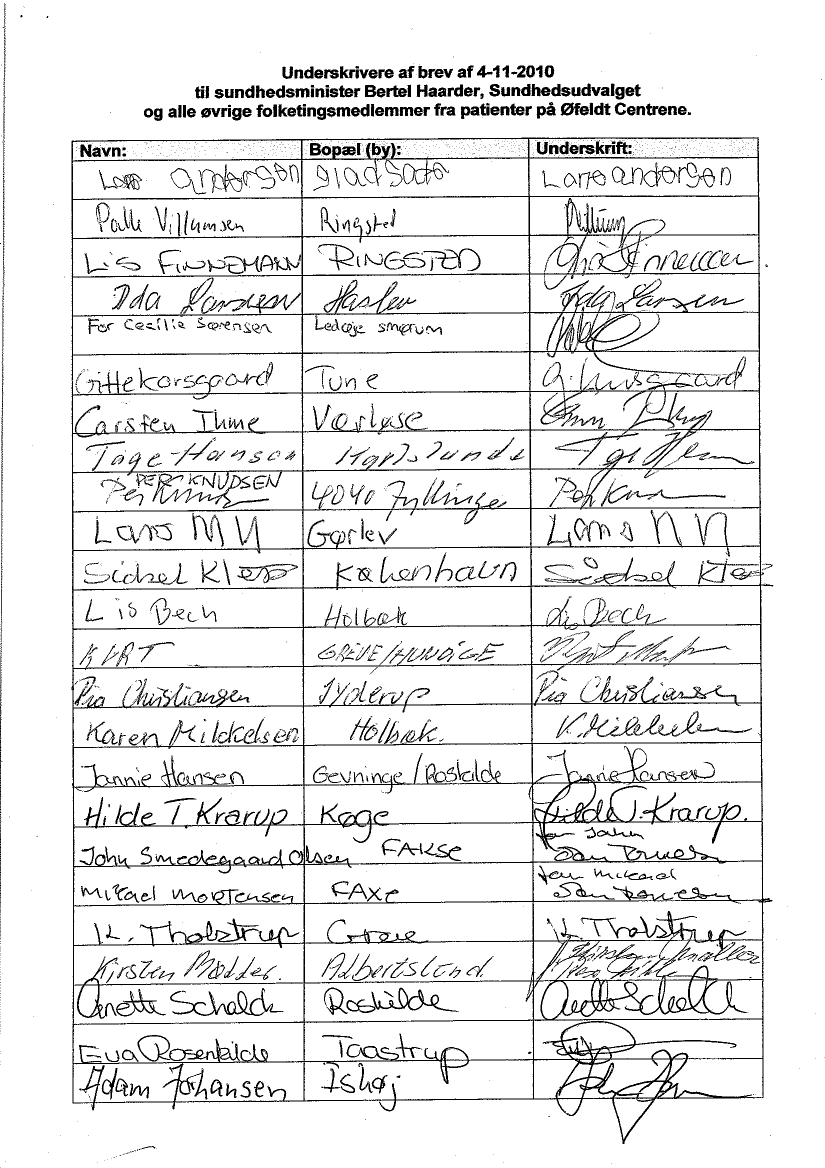 Underskrivere af brev af 4-11-2010
til sundhedsminister Bertel Haarder, Sundhedsudvalget
og alle øvrige folketingsmedlemmer fra patienter på Øfeldt Centrene.
Navn: Bopæl (by): Underskrift:
Lars andersen gladsaxe Lars andersen
Palle Villumsen Ringsted
LiS FINNEMANN RINGSTED
Ida Larsen Haslev Ida Larsen
For Cecilie Sørensen Ledøje smørum
Gitte Korsgaard Tune G. Korsgaard
Carsten Thime Værløse
Tage Hansen Karlslunde
PER KNUDSEN 4040 Jyllinge
Lars M N Gørlev Lars N N
Sidsel København Sidsel
Lis Bech Holbæk Lis Bech
KURT GREVE/HUNDIGE
Pia Christiansen Jyderup Pia Christiansen
Karen Mikkelsen Holbæk. K. Mikkelsen
Jannie Hansen Gevninge/Roskilde Jannie Hansen
Hilde T. Krarup Køge Hilde T. Krarup.
John Smedegaard Olsen FAKSE for John
Mikael Mortensen FAXE for Mikael
K. Tholstrup Greve K. Tholstrup
Kirsten Møller. Albertslund. Kirsten Møller
Anette Schalck Roskilde Anette Schalck
Eva Rosenkilde Taastrup
Adam Johansen Ishøj